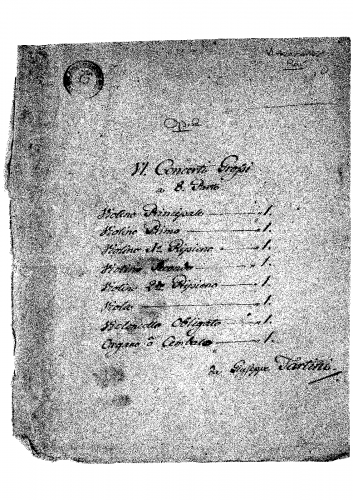 Op. 2
VI. Concerti Grossi
a 8. Parti
Violino Principale 1.
Violino Primo 1.
Violino 1mo Ripieno 1.
Violino Secondo 1.
Violino 2do Ripieno 1.
Viola 1.
Violoncello Obligato 1.
Organo ò Cembalo 1.
da Giuseppe Tartini